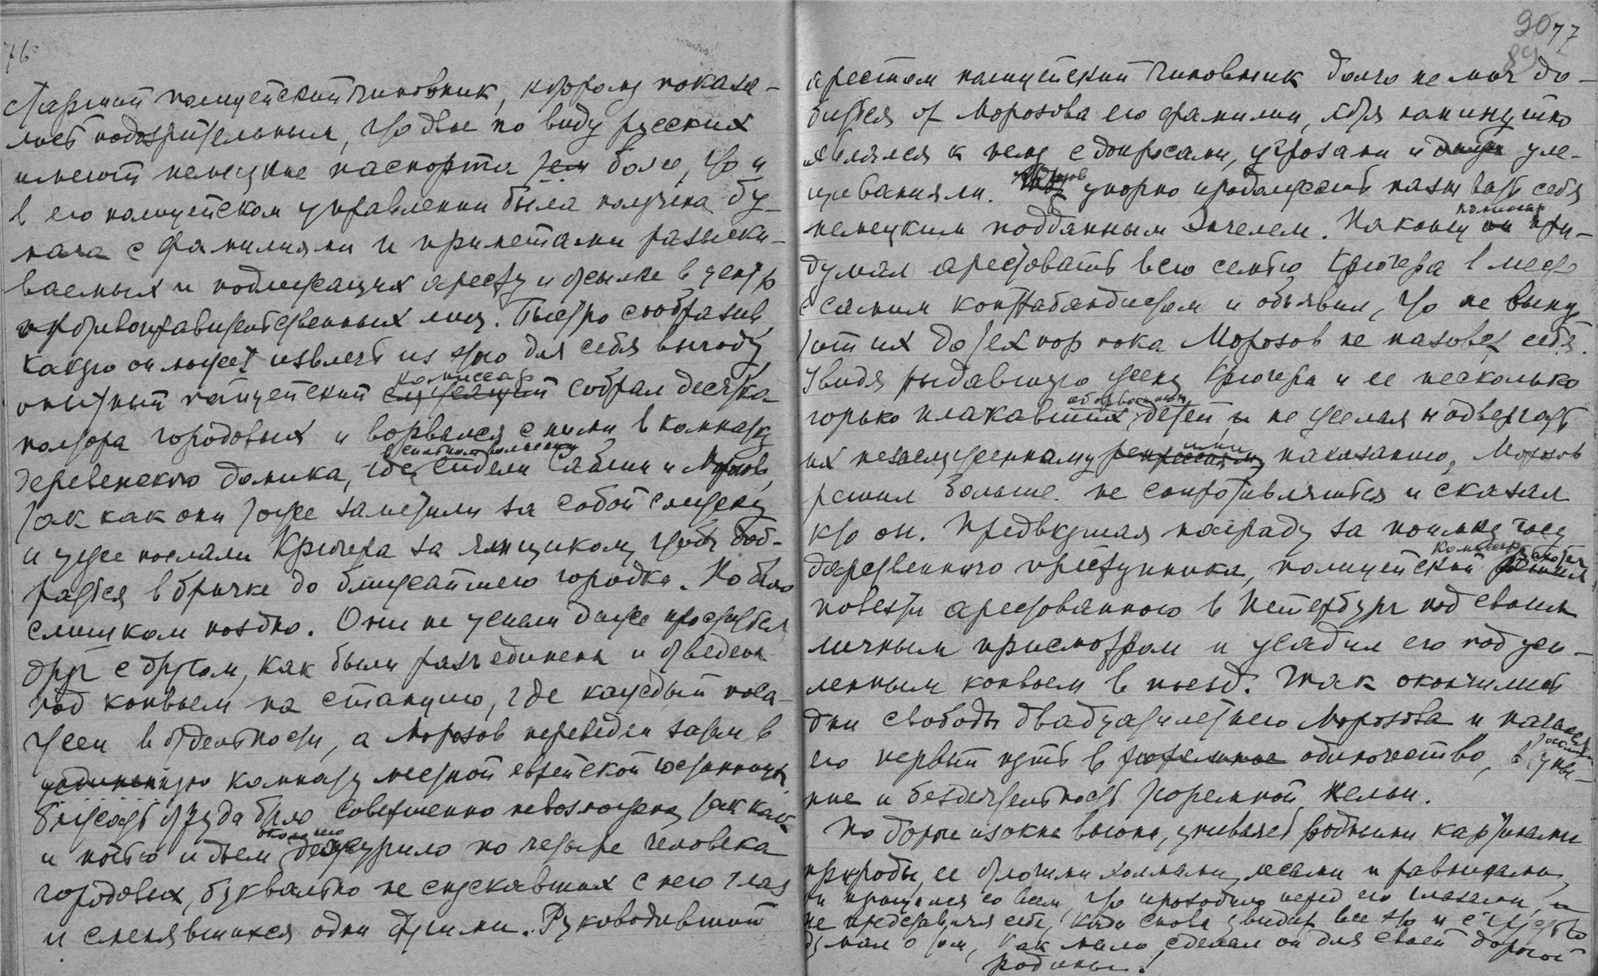 76
Старший полицейский чиновник, которому показа-
лось подозрительным, что двое по виду русских
имеют немецкие паспорта тем более, что и
в его полицейском управлении была получена бу-
мага с фамилиями и приметами разыски-
ваемых и подлежащих аресту и отсылке в центр
противоправительственных лиц. Быстро сообразив,
какую он может извлечь из этого для себя выгоду,
опытный полицейский комиссар собрал десятка
полтора городовых и ворвался с ними в комнату
деревенского домика, где сидели Саблин и Морозов,
так как они тоже заметили за собой слежку
и уже послали Крюгера за ямщиком, чтоб доб-
раться в бричке до ближайшего городка. Но было
слишком поздно. Они не успели даже проститься
друг с другом, как были разъединены и отведены
под конвоем на станцию, где каждый поса-
жен в отдельности, а Морозов переведен затем в
комнату местной еврейской гостиницы
Бежать оттуда было совершенно невозможно так как
и ночью и днем около него дежурило по четыре человека
городовых, буквально не спускавших с него глаз
и сменявшихся одни другими. Руководивший
90 77
89
арестом полицейский чиновник долго не мог до-
биться от Морозова его фамилии, хотя поминутно
являлся к нему с допросами, угрозами и уве-
щеваниями. Морозов упорно продолжал называть себя
немецким подданным Энгелем. Наконец полицейский при-
думал арестовать всю семью Крюгера вместе
с самим контрабандистом и объявил, что не выпу-
стит их до тех пор пока Морозов не назовет себя.
Увидя рыдавшую жену Крюгера и ее несколько
горько плакавших оборванных детей и не желая подвергать
их незаслуженному наказанию, Морозов
решил больше не сопротивляться и сказал
кто он. Предвкушая награду за поимку госу
дарственного преступника, полицейский комиссар
повезти арестованного в Петербург под своим
личным присмотром и усадил его под уси-
ленным конвоем в поезд. Так окончились
дни свободы двадцатилетнего Морозова и начался
его первый путь в одиночество, в уны-
ние и бездеятельность тюремной кельи.
По дороге из окна вагона, упиваясь родными картинами
природы, ее отлогими холмами, лесами и равнинами,
он прощался со всем, что проходило перед его глазами, и
не представлял себе, когда снова увидит все это и с грустью
думал о том, как мало сделал он для своей дорогой
родины.